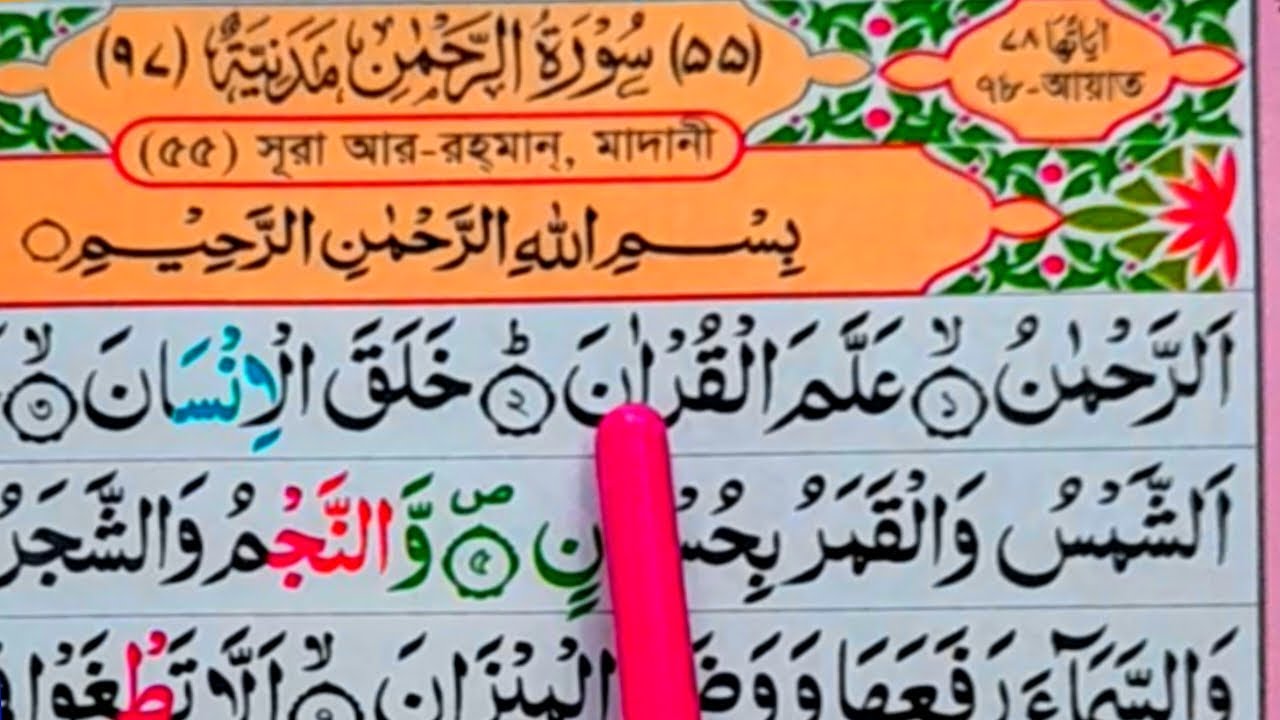 (٥٥) سُوْرَةُ الرَّحْمٰنِ مَدَنِيَّةٌ (٩٧)
اٰيَاتُهَا ٧٨
৭৮-আয়াত
(৫৫) সূরা আর-রহ্‌মান্, মাদানী
بِسْــمِ اللهِ الرَّحْمٰنِ الرَّحِيْــمِ ○
اَلرَّحْمٰنُ ۙ﴿١﴾ عَلَّمَ الْقُرْاٰنَ ؕ﴿٢﴾ خَلَقَ الْاِنْسَانَ ۙ﴿٣﴾
اَلشَّمْسُ وَالْقَمَرُ نٍ ࣕ﴿٥﴾ وَّالنَّجْمُ وَالشَّجَرُ
وَالسَّمَآءَ رَفَعَهَا الْمِيْزَانَ ۙ﴿٧﴾ اَلَّا تَطْغَوْا